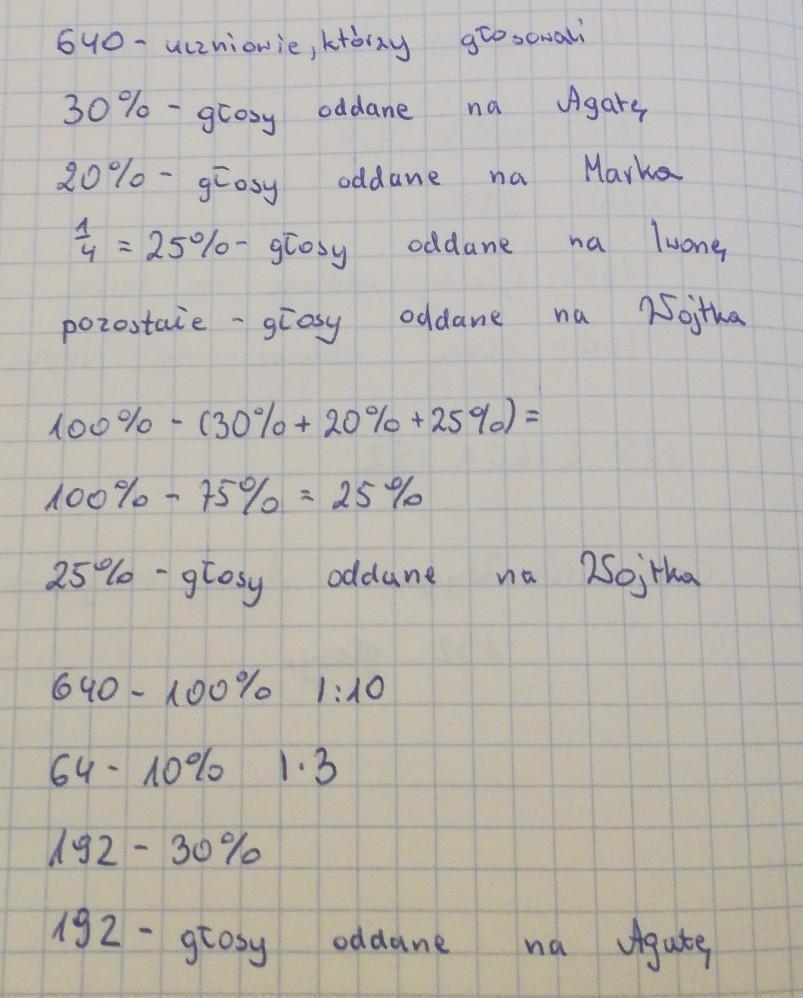 640 - uczniowie, którzy głosowali
30% - głosy oddane na Agatę
20% - głosy oddane na Marka
1/4 = 25% - głosy oddane na Iwonę
pozostałe - głosy oddane na Wojtka
100% - (30% + 20% + 25%) =
100% - 75% = 25%
25% - głosy oddane na Wojtka
640 - 100% |:10
64 - 10% |·3
192 - 30%
192 - głosy oddane na Agatę